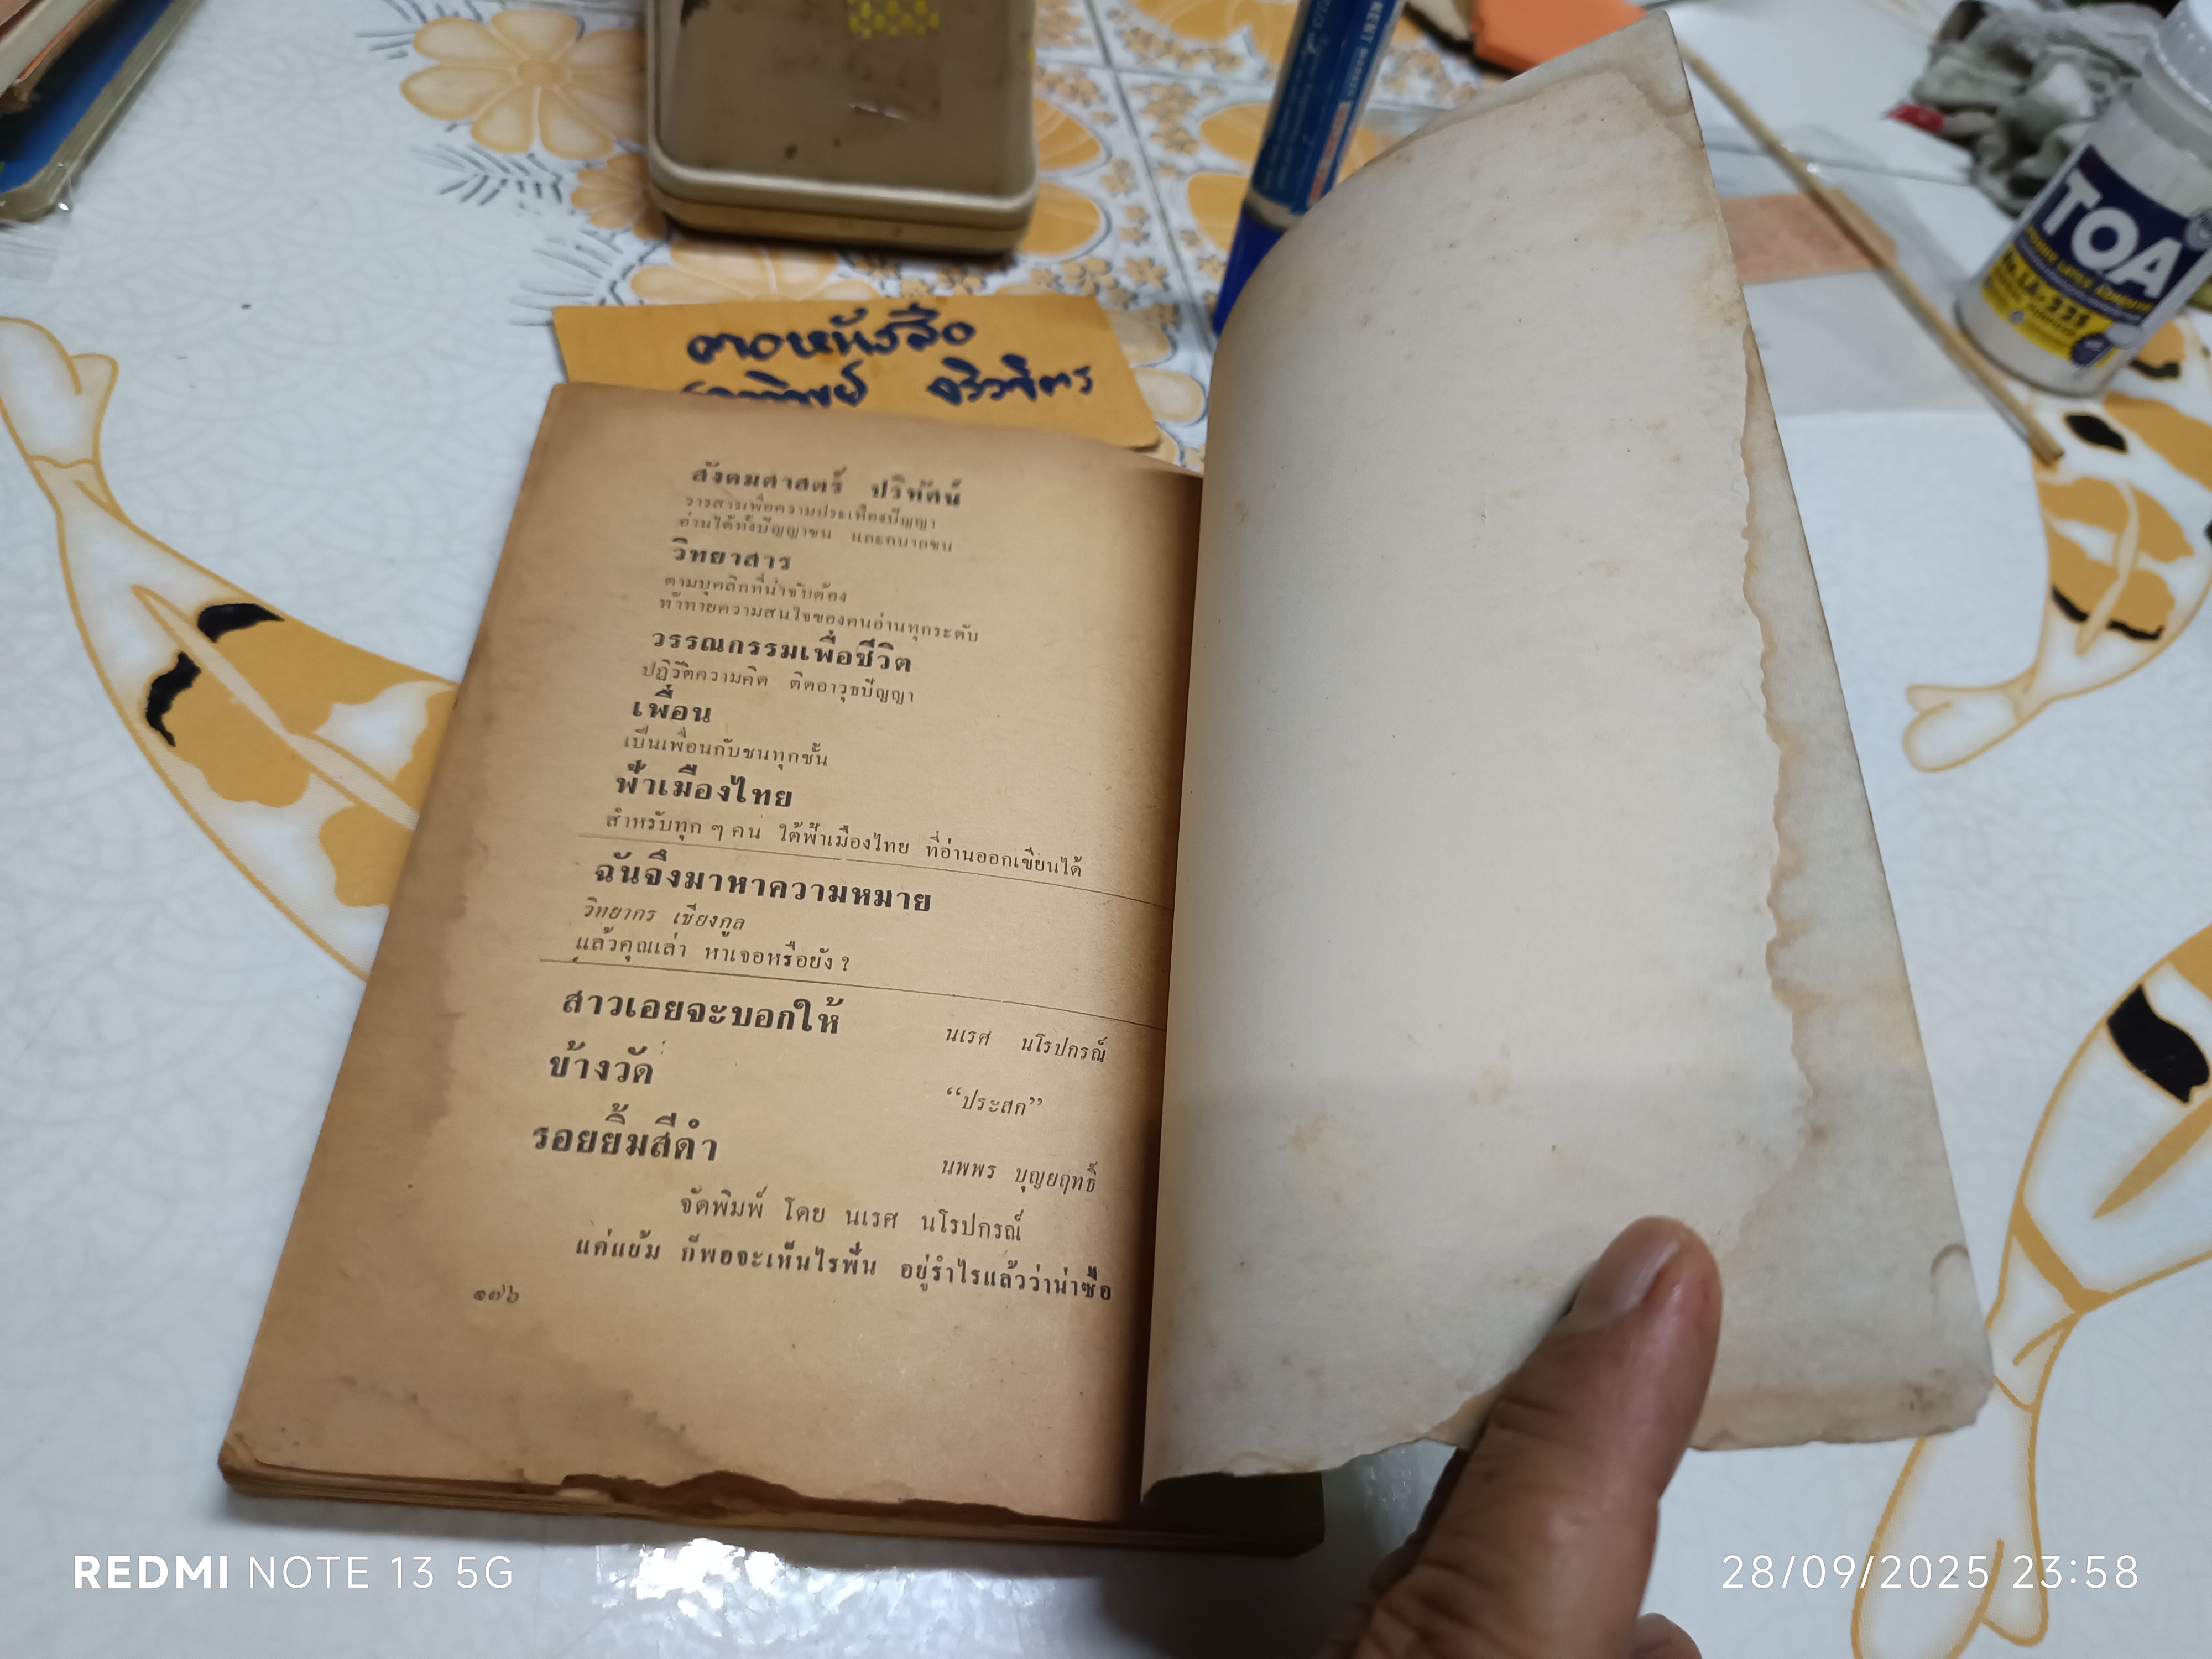 ตาดหนังสือ
จิรวิจิตร
TOA
LA-22S
สังคมศาสตร์ ปริทัศน์
วารสารเพื่อความประเทืองปัญญา
อ่านได้ทั้งปัญญาชน และอนาถชน
วิทยาสาร
ตามบุคลิกที่น่าจับต้อง
ท้าทายความสนใจของคนอ่านทุกระดับ
วรรณกรรมเพื่อชีวิต
ปฏิวัติความคิด ติดอาวุธปัญญา
เพื่อน
เป็นเพื่อนกับชนทุกชั้น
ฟ้าเมืองไทย
สำหรับทุก ๆ คน ใต้ฟ้าเมืองไทย ที่อ่านออกเขียนได้
ฉันจึงมาหาความหมาย
วิทยากร เชียงกูล
แล้วคุณเล่า หาเจอหรือยัง ?
สาวเอยจะบอกให้ นเรศ นโรปกรณ์
ข้างวัด “ประสก”
รอยยิ้มสีดำ นพพร บุญยฤทธิ์
จัดพิมพ์ โดย นเรศ นโรปกรณ์
แค่แย้ม ก็พอจะเห็นไรฟัน อยู่รำไรแล้วว่าน่าซื้อ
๑๗๖
REDMI NOTE 13 5G
28/09/2025 23:58